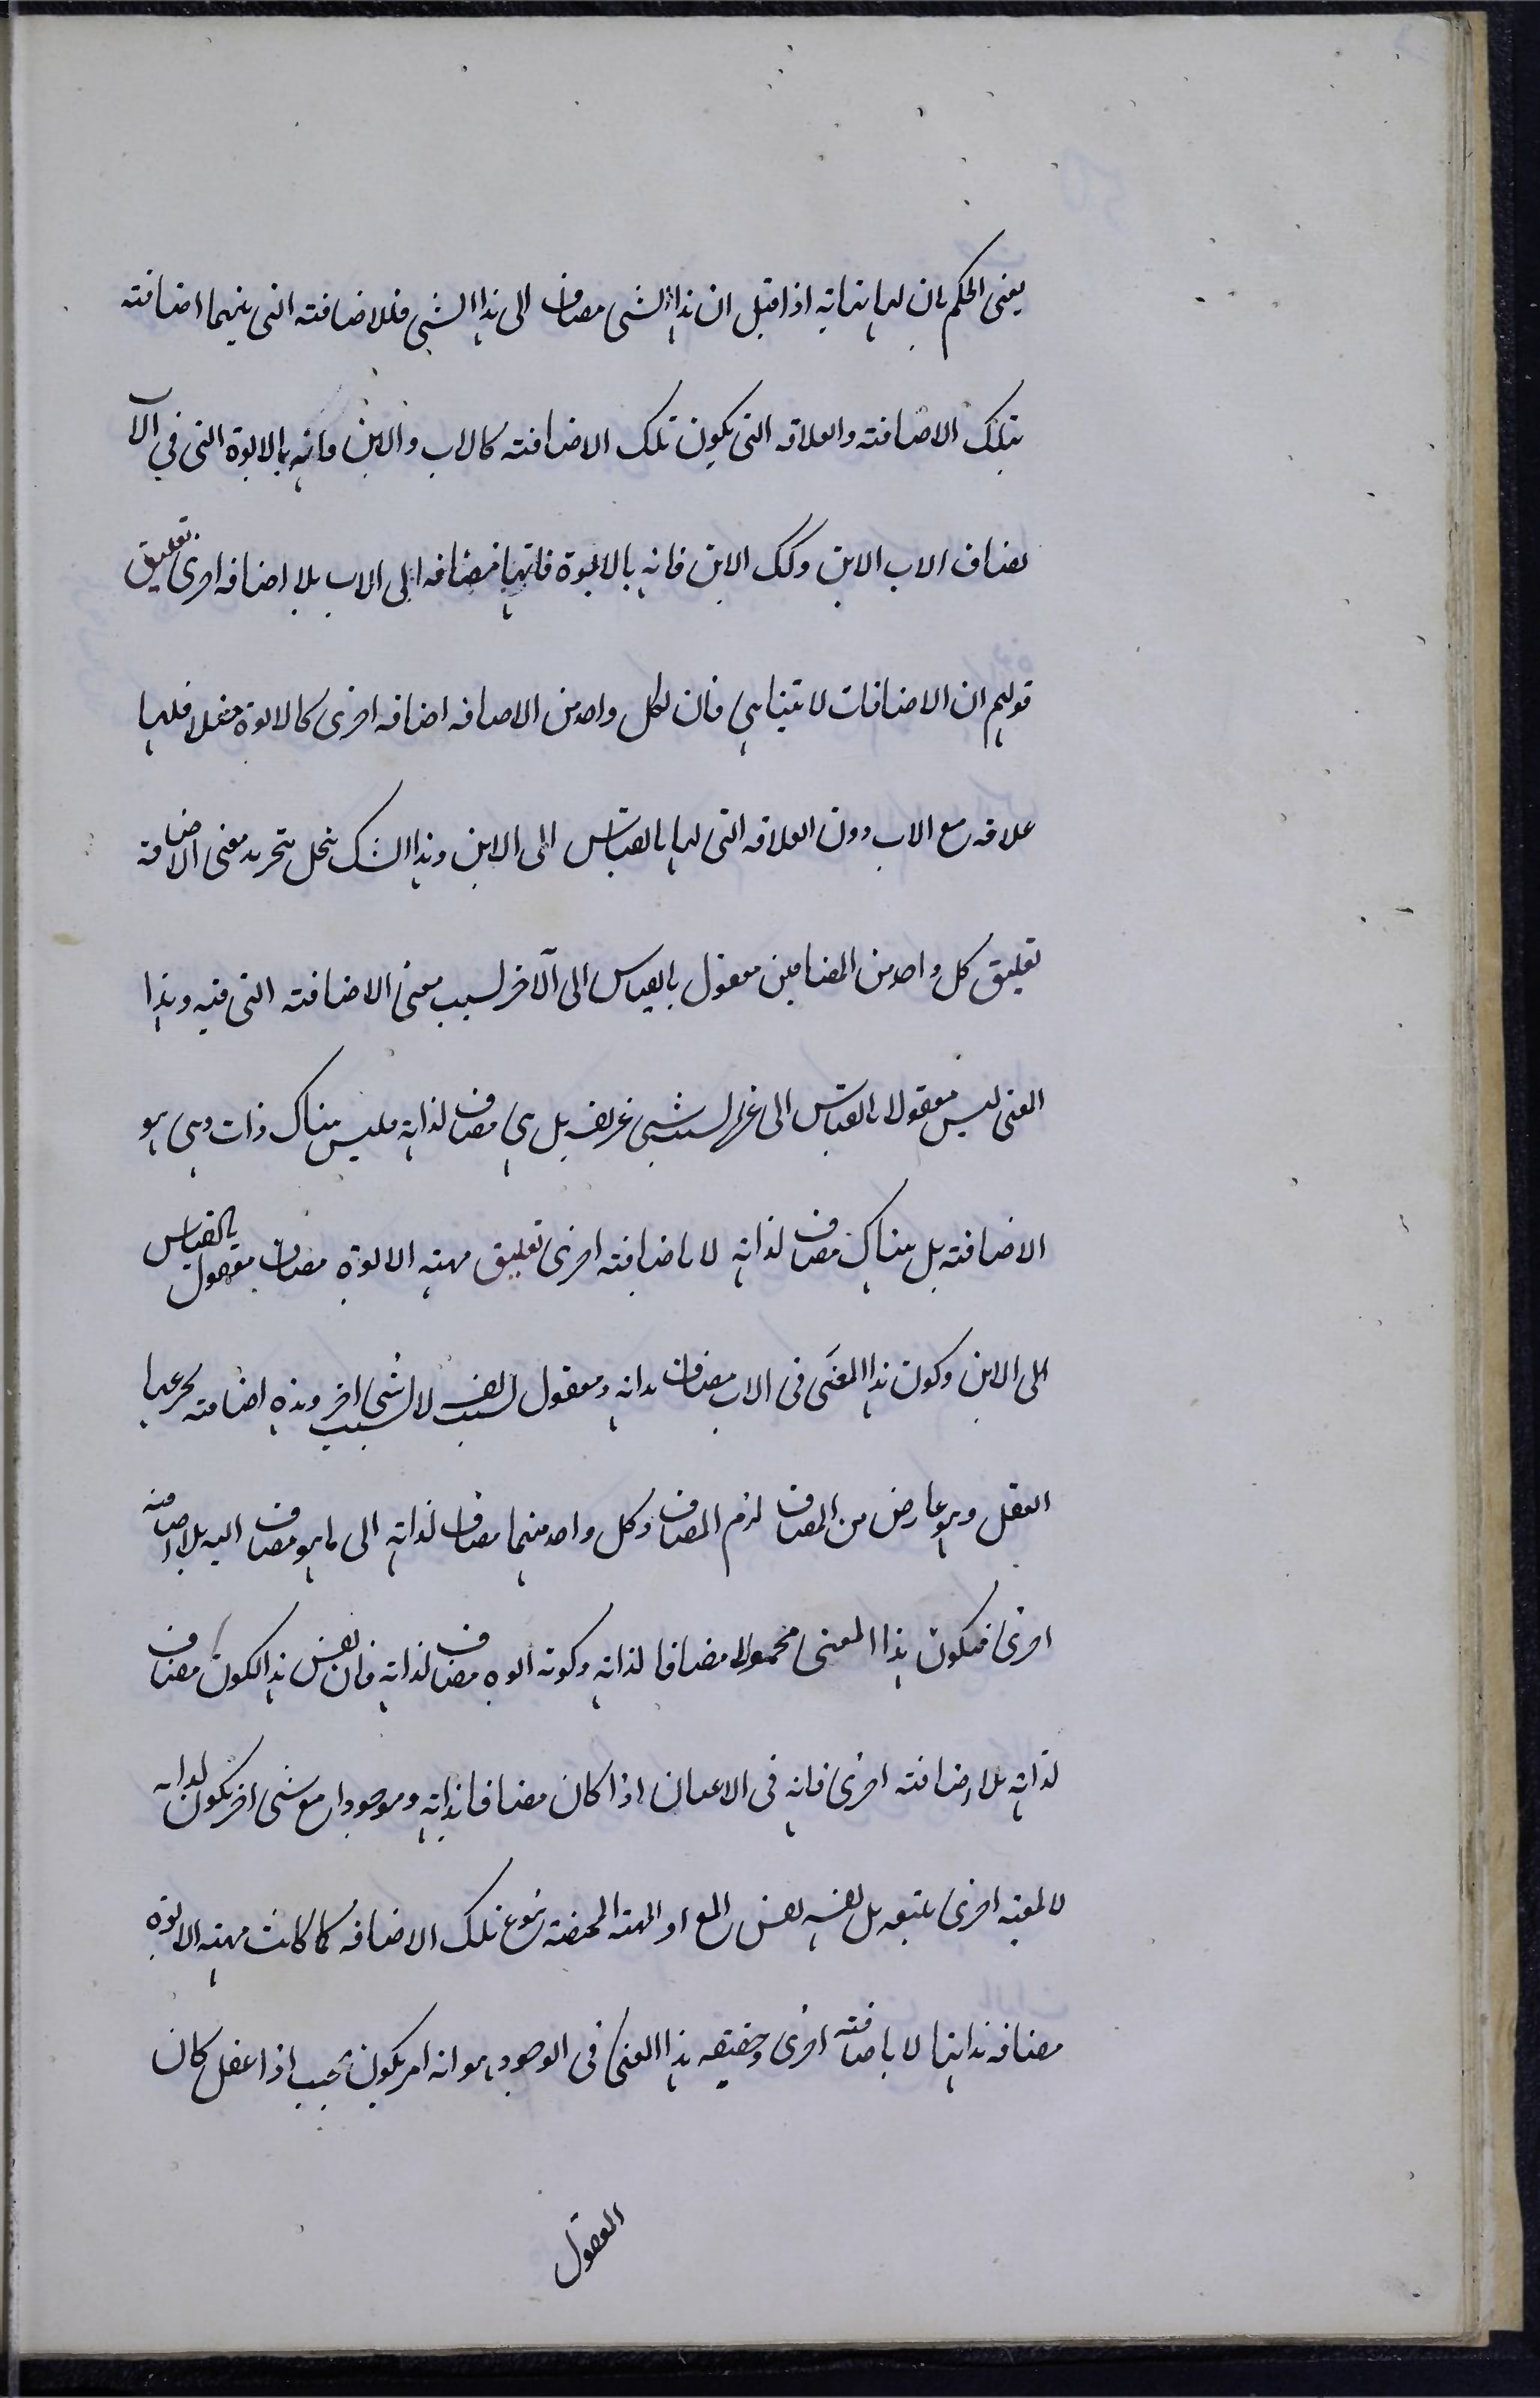 يعنى الحكم بان لها نهاية اذا قيل ان هذا الشى مضاف الى هذا الشى فللاضافته التى بينهما اضافته
بتلك الاضافته والعلاقه التى يكون تلك الاضافته كالاب والابن فانه بالابوة التى في الآ
يضاف الاب الابن وكك الابن فانه بالابوة فانها مضافه الى الاب بلا اضافه اخرى تعليق
قولهم ان الاضافات لا تتناهى فان لكل واحد من الاضافه اضافه اخرى كالابوة مثلا فلها
علاقه مع الاب دون العلاقه التى لها بالقياس الى الابن وهذا الشك ينحل بتحريد معنى الاضافة
تعليق كل واحد من المضافين معقول بالقياس الى الآخر لسبب معنى الاضافته التى فيه وهذا
المعنى ليس معقولا بالقياس الى غيره لسبب شى غير نفسه بل هى مضاف لذاته فليس هناك ذات وهى هو
الاضافته بل هناك مضاف لذاته لا باضافته اخرى تعليق مهيه الابوة مضاف معقول بالقياس
الى الابن وكون هذا المعنى فى الاب مضاف بذاته ومعقول لسبب نفسه لا لسبب شى اخر وهذه اضافته يخرعها
العقل وهو عارض من المضاف لزم المضاف وكل واحد منهما مضاف لذاته الى ما هو مضاف اليه بلا اضافته
اخرى فيكون هذا المعنى محمولا مضافا لذاته وكونه ابوه مضاف لذاته فان نفس هذا الكون مضاف
لذاته بلا اضافته اخرى فانه فى الاعيان اذا كان مضافا بذاته وموجودا مع شى اخر يكون لذاته
لا لمعيه اخرى يتبعه بل نفسه نفس المع او المهيه المختصه بنوع تلك الاضافه كما كانت مهيه الابوة
مضافه بذاتها لا باضافته اخرى وحقيقه هذا المعنى فى الوجود هو انه امر يكون بحيث اذا عقل كان
المعقول